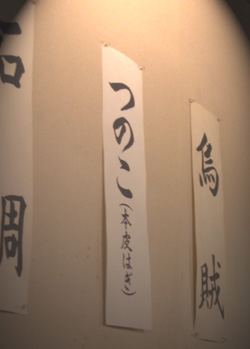 石周
つのこ(本皮はぎ)
烏賊